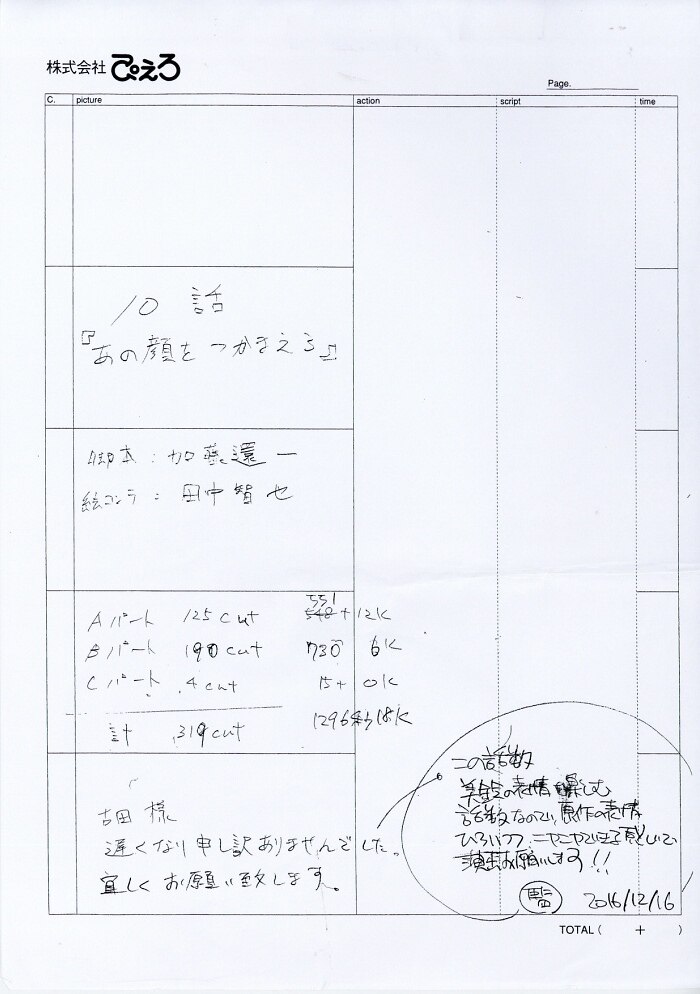 株式会社 ぴえろ
Page.
C. picture action script time
10 話
『あの顔をつかまえろ』
脚本：加藤還一
絵コンテ：田中智也
Aパート 125cut 551 548+12K
Bパート 190cut 730 6K
Cパート 4cut 15+0K
計 319cut 1296秒18K
古田様
遅くなり申し訳ありませんでした。
宜しくお願い致します。
この話数
の表情 楽しむ
話数なので、原作の表情
ひろいつつ、ニヤニヤできる感じで
演出お願いします!!
監 2016/12/16
TOTAL ( + )